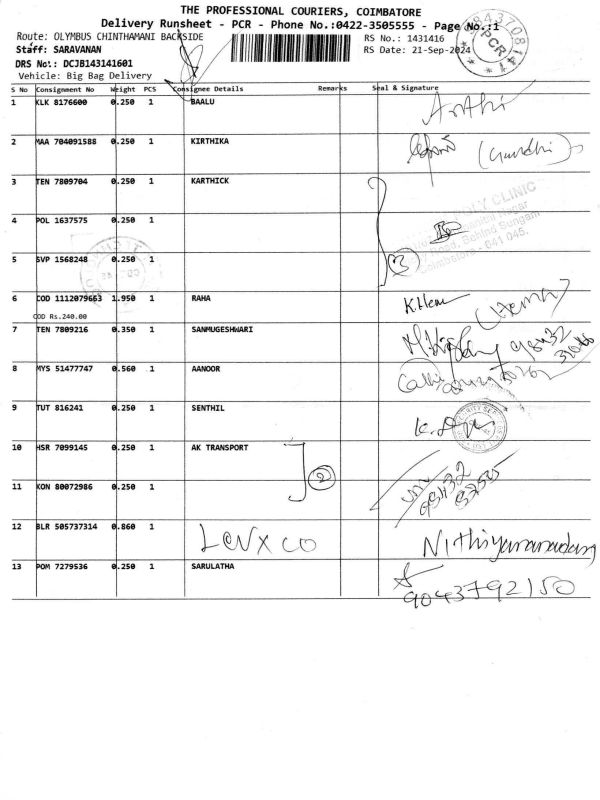 THE PROFESSIONAL COURIERS, COIMBATORE
Delivery Runsheet - PCR - Phone No.:0422-3505555 - Page No.:1
Route: OLYMBUS CHINTHAMANI BACKSIDE
RS No.: 1431416
Staff: SARAVANAN
RS Date: 21-Sep-2024
DRS No.: DCJB143141601
Vehicle: Big Bag Delivery
PCR
S No Consignment No Weight PCS Consignee Details Remarks Seal & Signature
1 KLK 8176600 0.250 1 BAALU Arthi
2 MAA 704091588 0.250 1 KIRTHIKA
3 TEN 7809704 0.250 1 KARTHICK
4 POL 1637575 0.250 1
5 SVP 1568248 0.250 1 3
POLY CLINIC
Behind Sungam
Coimbatore - 641 045.
6 COD 1112079663 1.950 1 RAHA K.Hema (Hema)
COD Rs.240.00
7 TEN 7809216 0.350 1 SANMUGESHWARI
8 MYS 51477747 0.560 1 AANOOR
9 TUT 816241 0.250 1 SENTHIL
10 HSR 7099145 0.250 1 AK TRANSPORT
2
11 KON 80072986 0.250 1
12 BLR 505737314 0.860 1 LenxCO Nithiyanandang
13 POM 7279536 0.250 1 SARULATHA
9043792150